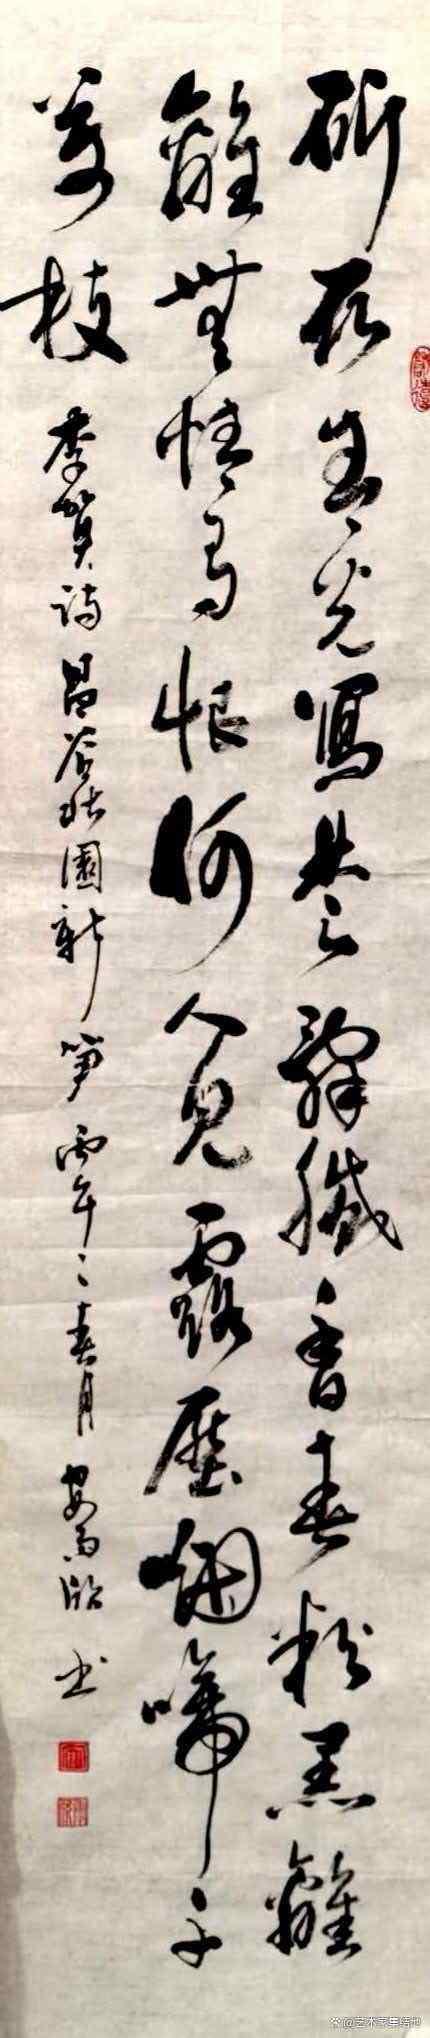 斫取青光寫楚辭膩香春粉黑離
離無情有恨何人見露壓烟啼千
萬枝
李賀詩昌谷北園新笋 丙午之春月 书
@艺术家集结地